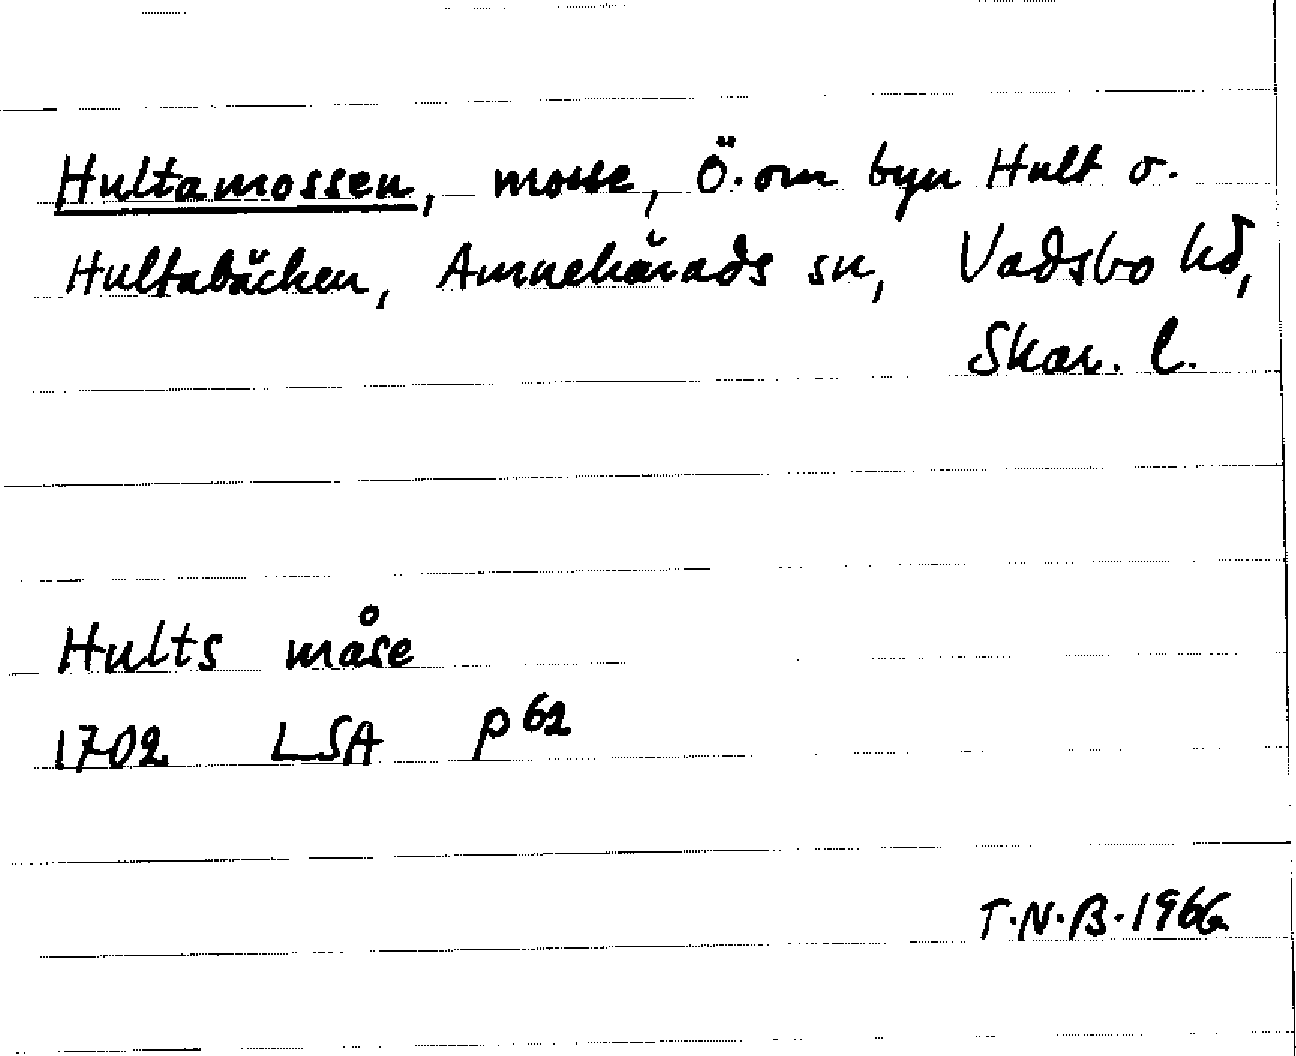 Hultamossen, mosse, Ö. om byn Hult o.
Hultabäcken, Amnehärads sn, Vadsbo hd,
Skar. l.
Hults måse
1702 LSA P 62
T.N.B. 1966